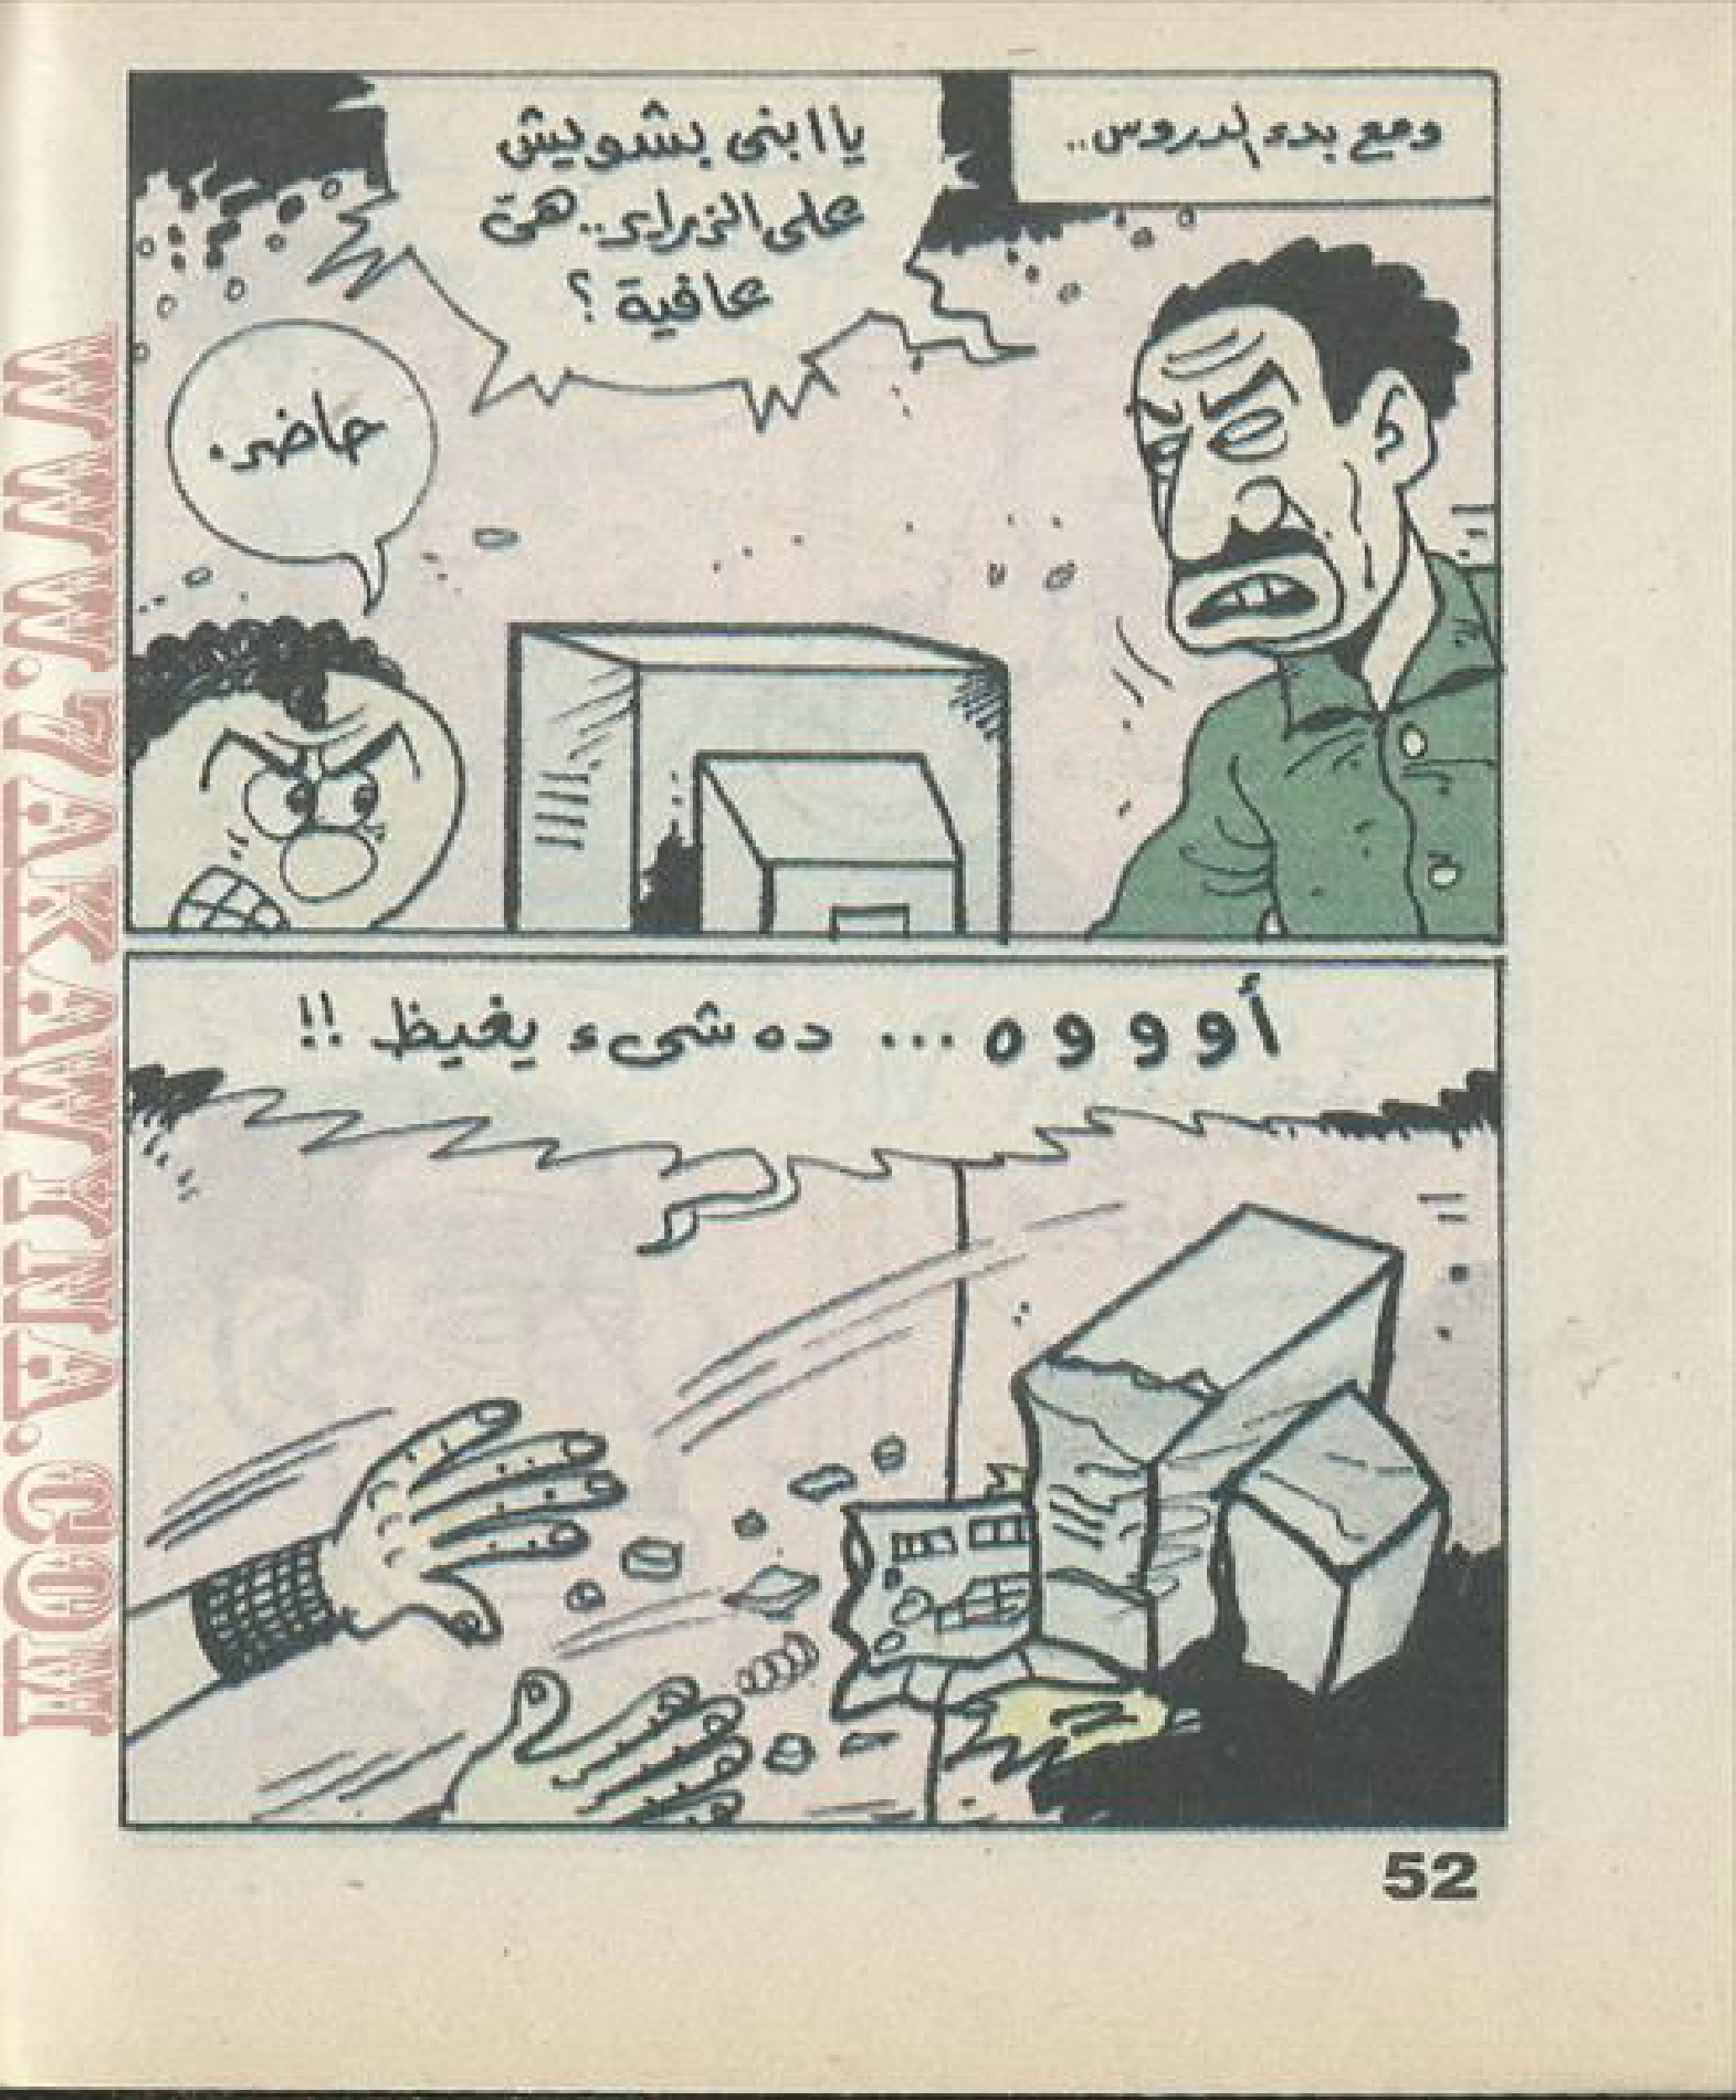 ومع بدء الدروس..
يا ابنى بشويش
على الزراير.. هى
عافية ؟
حاضر.
أووووه ... ده شىء يغيظ !!
52
WWW.7AKAWTINA.COM